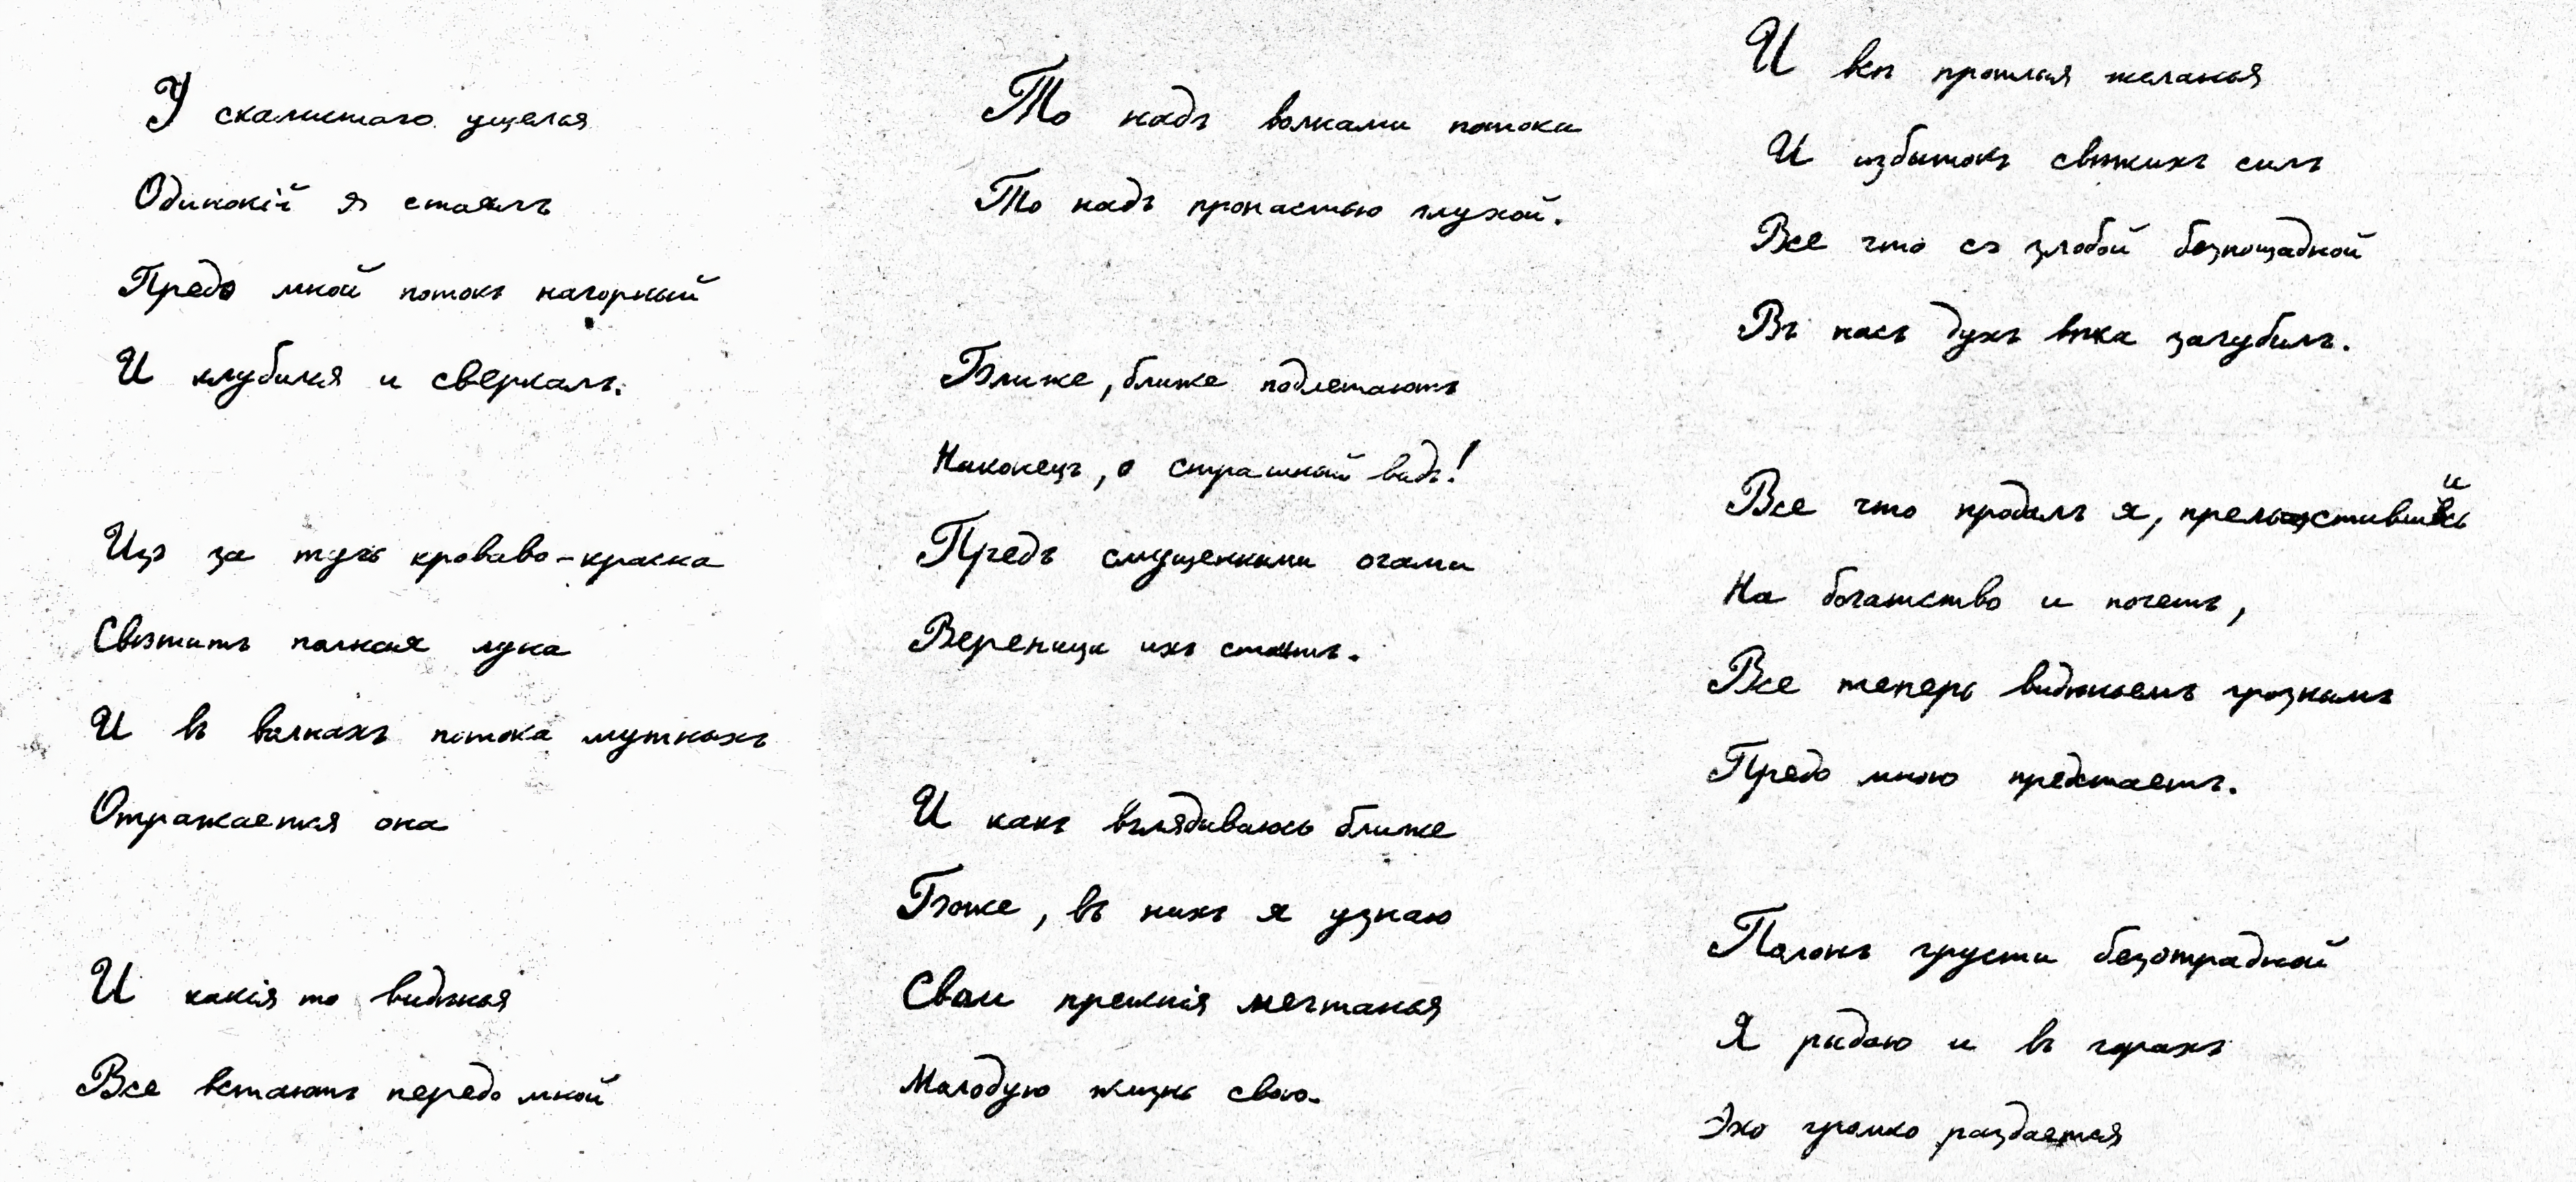 У скалистаго ущелья
Одинокій я стоялъ
Предо мной потокъ нагорный
И клубился и сверкалъ.
Изъ за тучъ кроваво-красна
Свѣтитъ полная луна
И въ волнахъ потока мутныхъ
Отражается она
И какія то видѣнья
Все встаютъ передо мной
То надъ волнами потока
То надъ пропастью глухой.
Ближе, ближе подлетаютъ
Наконецъ, о страшный видъ!
Предъ смущенными очами
Вереница ихъ стоитъ.
И какъ вглядываюсь ближе
Боже, въ нихъ я узнаю
Свои прежнія мечтанья
Молодую жизнь свою.
И всѣ прошлыя желанья
И избытокъ свѣжихъ силъ
Все что съ злобой безпощадной
Въ насъ духъ вѣка загубилъ.
Все что продалъ я, прельстившись
На богатство и почетъ,
Все теперь видѣньемъ грознымъ
Предо мною предстаетъ.
Полонъ грусти безотрадной
Я рыдаю и въ горахъ
Эхо громко раздается